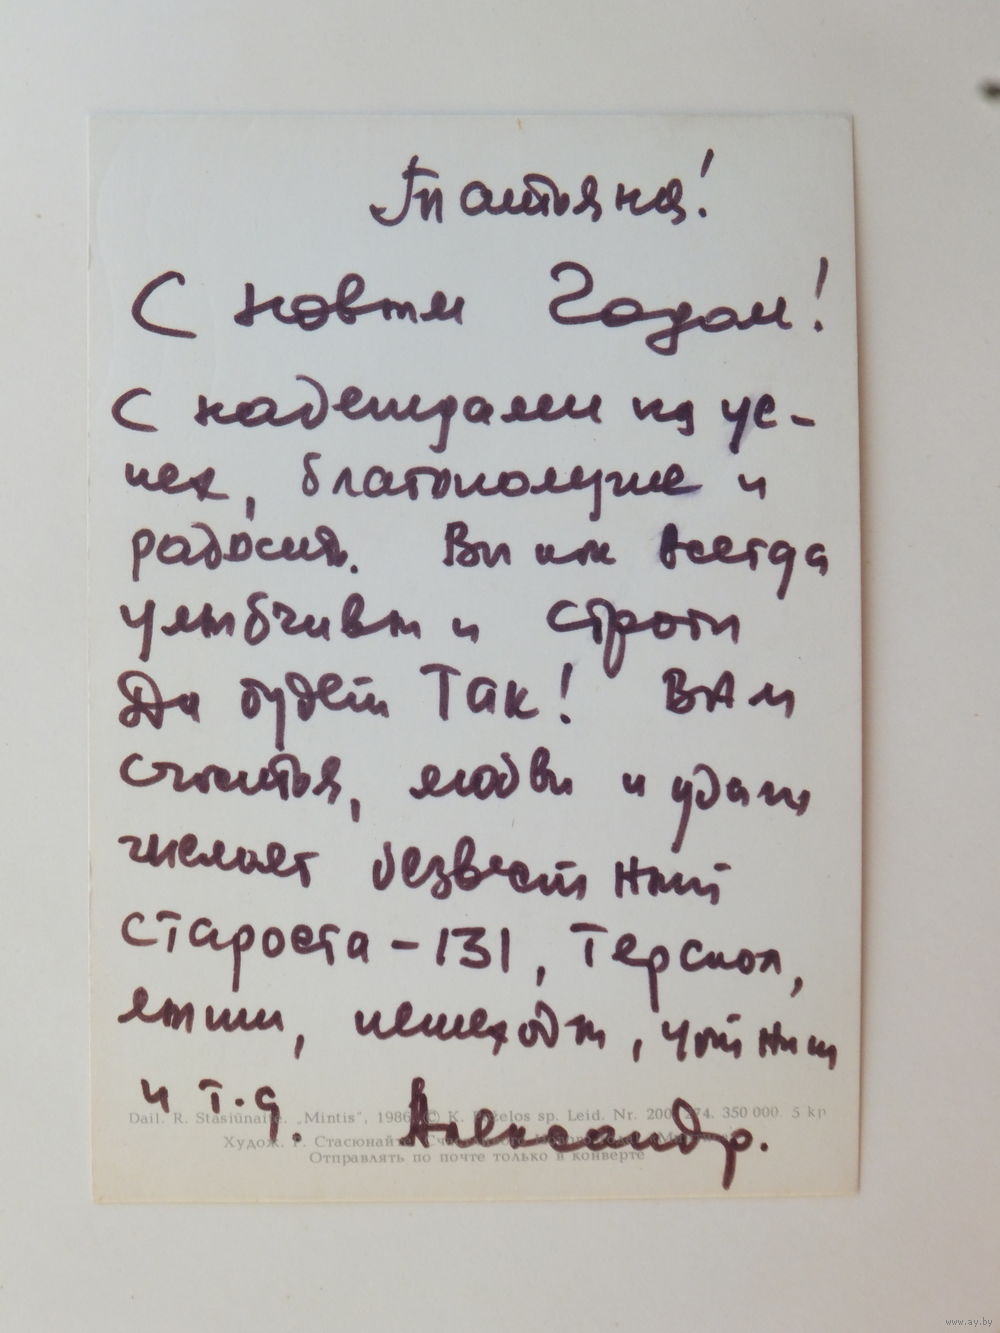 Татьяна!
С новым Годом!
С надеждами на ус-
пех, благополучие и
радость. Вы как всегда
улыбчивы и строги
Да будет Так! ВАм
счастья, любви и удачи
желает безвестный
староста-131, Терскол,
пешеходы,
и т.д. Александр.
Dail. R. Stasiūnaitė. „Mintis“, 1986 © K. Poželos sp. Leid. Nr. 350 000. 5 kp
Худож. Р. Стасюнайте
Отправлять по почте только в конверте
www.ay.by